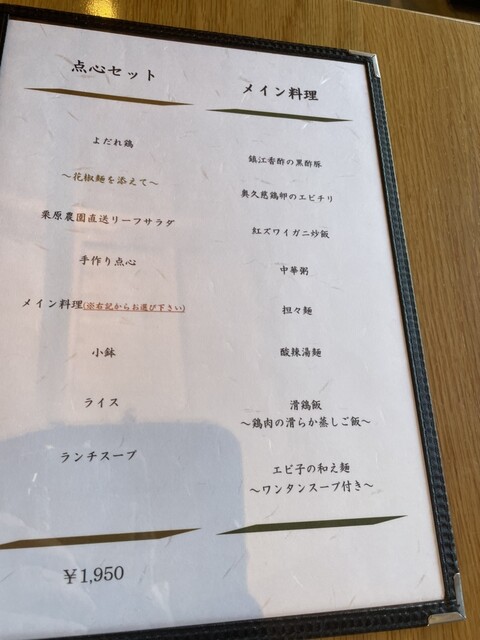 点心セット
よだれ鶏
～花椒麺を添えて～
栗原農園直送リーフサラダ
手作り点心
メイン料理(※右記からお選び下さい)
小鉢
ライス
ランチスープ
￥1,950
メイン料理
鎮江香酢の黒酢豚
奥久慈鶏卵のエビチリ
紅ズワイガニ炒飯
中華粥
担々麺
酸辣湯麺
滑鶏飯
～鶏肉の滑らか蒸しご飯～
エビ子の和え麺
～ワンタンスープ付き～